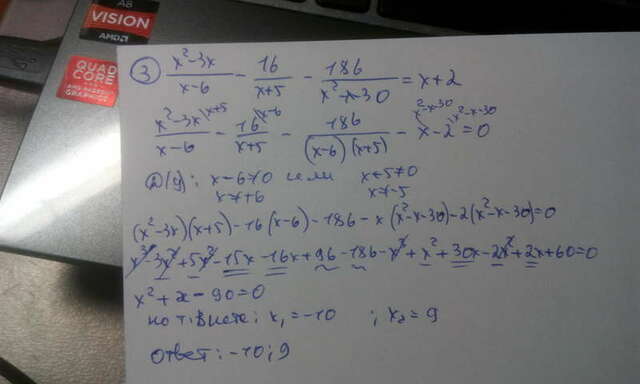 A8
VISION
AMD
QUAD
CORE
AMD RADEON
GRAPHICS
③ (x²-3x)/(x-6) - 16/(x+5) - 186/(x²-x-30) = x+2
(x²-3x)/(x-6) |x+5 - 16/(x+5) |x-6 - 186/((x-6)(x+5)) - x |x²-x-30 - 2 |x²-x-30 = 0
D(y): x-6≠0 или x+5≠0
x≠+6 x≠-5
(x²-3x)(x+5)-16(x-6)-186-x(x²-x-30)-2(x²-x-30)=0
x³-3x²+5x²-15x-16x+96-186-x³+x²+30x-2x²+2x+60=0
x²+x-90=0
по т. Виета: x₁=-10 ; x₂=9
Ответ: -10; 9